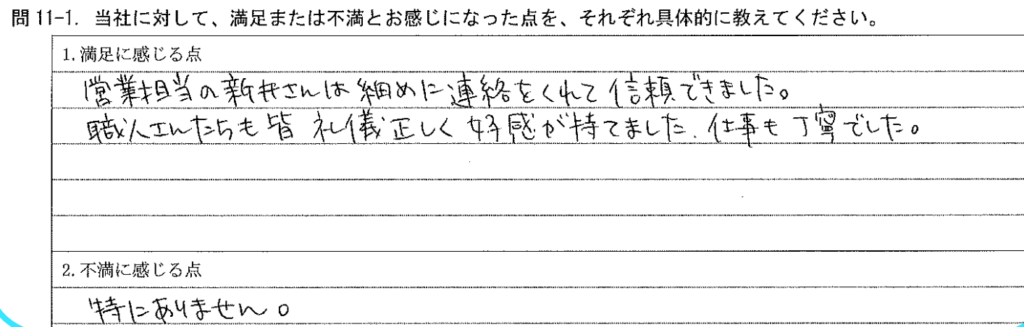 問 11-1. 当社に対して、満足または不満とお感じになった点を、それぞれ具体的に教えてください。
1. 満足に感じる点
営業担当の新井さんは細めに連絡をくれて信頼できました。
職人さんたちも皆礼儀正しく好感が持てました. 仕事も丁寧でした。
2. 不満に感じる点
特にありません。